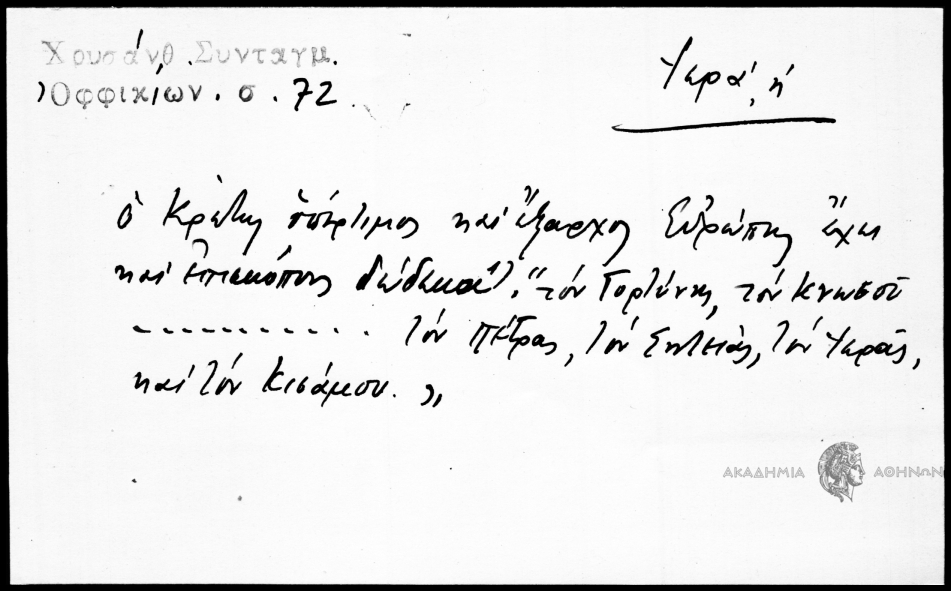 Χρυσάνθ. Συνταγμ.
Ὀφφικίων. σ. 72
Ἱερά, ἡ
ὁ Κρήτης ὑπέρτιμος καὶ ἔξαρχος Εὐρώπης ἔχει
καὶ ἐπισκόπους δώδεκα· "τὸν Γορτύνης, τὸν Κνωσοῦ
............ τὸν Πέτρας, τὸν Σητείας, τὸν Ἱερᾶς,
καὶ τὸν Κισάμου."
ΑΚΑΔΗΜΙΑ ΑΘΗΝΩΝ